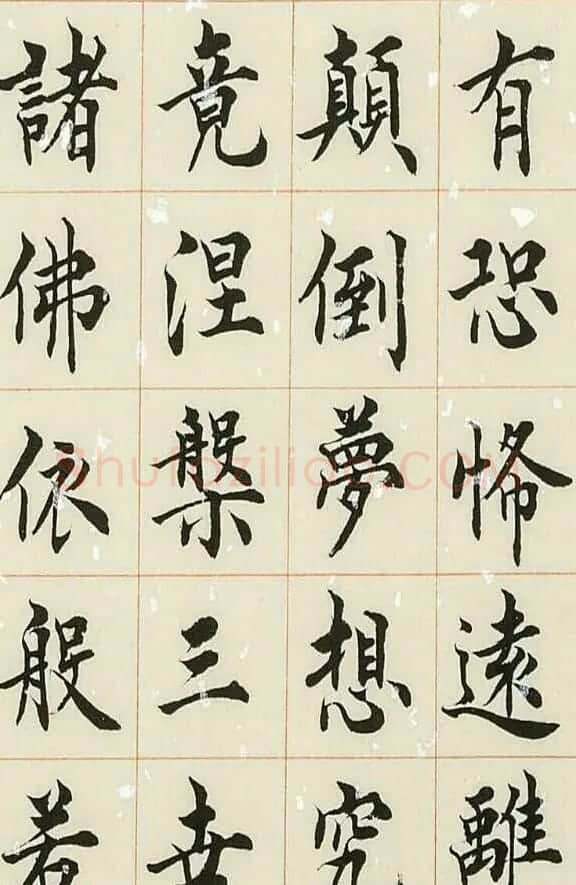 有恐悕遠離
顛倒夢想究
竟涅槃三世
諸佛依般若
Shufaziliao.COM